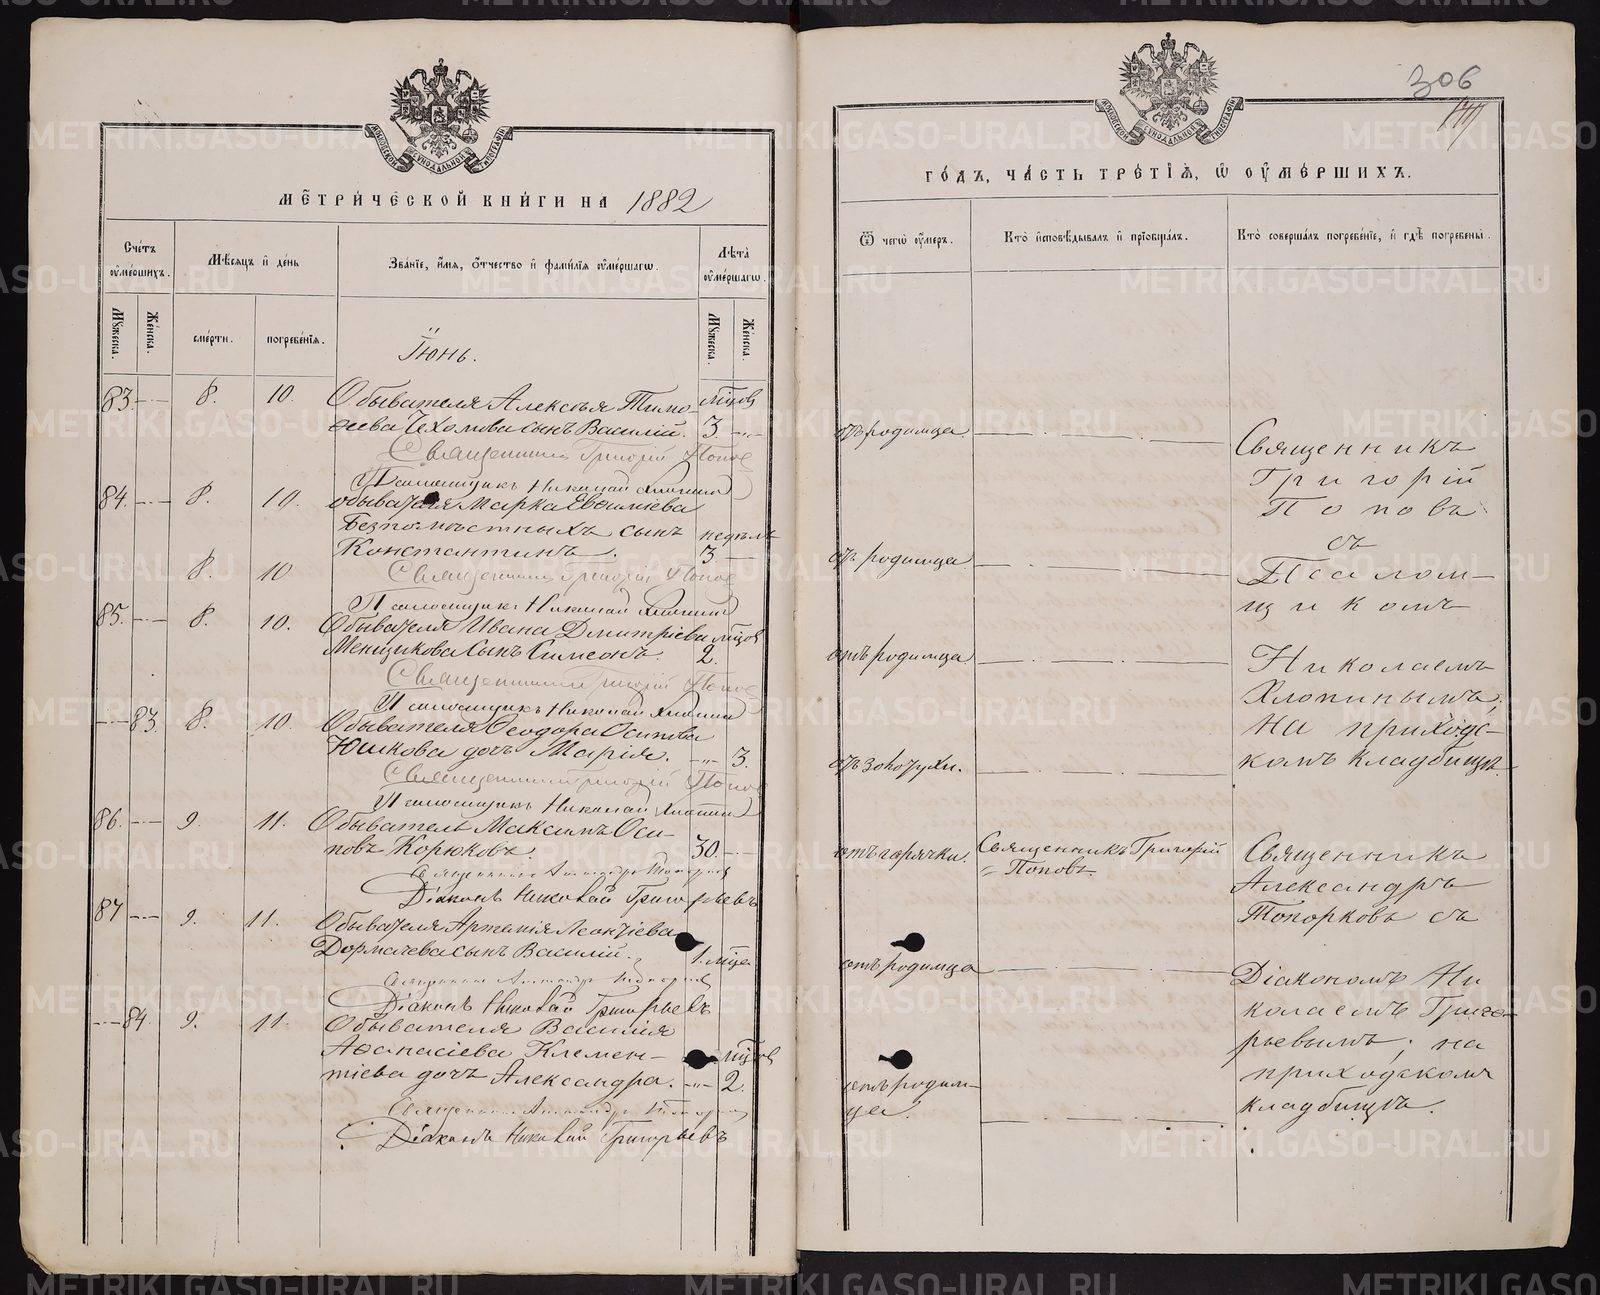 МЕТРИЧЕСКОЙ КНИГИ НА 1882
Счетъ умершихъ.
Мѣсяцъ и день
Званіе, имя, отчество и фамилія умершаго.
Лѣта умершаго.
Мужеска.
Женска.
смерти.
погребенія.
Мужеска.
Женска.
Іюнь.
83. 8. 10. Обывателя Алексѣя Тимо- мцов
ѳеева Чехомова сынъ Василій. 3.
Священникъ Григорій Попов
Псаломщикъ Николай Хлопинъ
84. 8. 10. обывателя Марка Евсиніева
Безпомѣстныхъ сынъ недѣль
Константинъ. 3
8. 10
Священникъ Григорій Попов
Псаломщикъ Николай Хлопинъ
85. 8. 10. Обывателя Ивана Дмитріева мцов
Менщикова Сынъ Симеонъ. 2.
Священникъ Григорій Попов
Псаломщикъ Николай Хлопинъ
83. 8. 10. Обывателя Ѳеодора Осипова
Юшкова дочь Марія. 3.
Священникъ Григорій Попов
Псаломщикъ Николай Хлопинъ
86. 9. 11. Обыватель Максимъ Оси-
повъ Корюковъ. 30.
Священникъ Александръ Топорков
Діаконъ Николай Григорьевъ
87 9. 11. Обывателя Артемія Леонтіева
Дормачева сынъ Василій. 1. мца
Священникъ Александръ Топорков
Діаконъ Николай Григорьевъ
84 9. 11. Обывателя Василія
Аѳанасіева Клемен- мцов
тіева дочь Александра. 2.
Священникъ Александръ Топорков
Діаконъ Николай Григорьевъ
306
ГОДЪ, ЧАСТЬ ТРЕТІЯ, О УМЕРШИХЪ.
Отъ чего умеръ.
Кто исповѣдывалъ и пріобщалъ.
Кто совершалъ погребеніе, и гдѣ погребены.
отъ родимца
Священникъ
Григорій
Поповъ
съ
отъ родимца
Псалом-
щикомъ
отъ родимца
Николаемъ
Хлопинымъ;
на приходс-
комъ кладбищѣ.
отъ золотухи.
отъ горячки. Священникъ Григорій
Поповъ
Священникъ
Александръ
Топорковъ съ
отъ родимца
Діакономъ Ни
колаемъ Григо-
рьевымъ; на
приходскомъ
кладбищѣ.
отъ родим-
ца.
METRIKI.GASO-URAL.RU